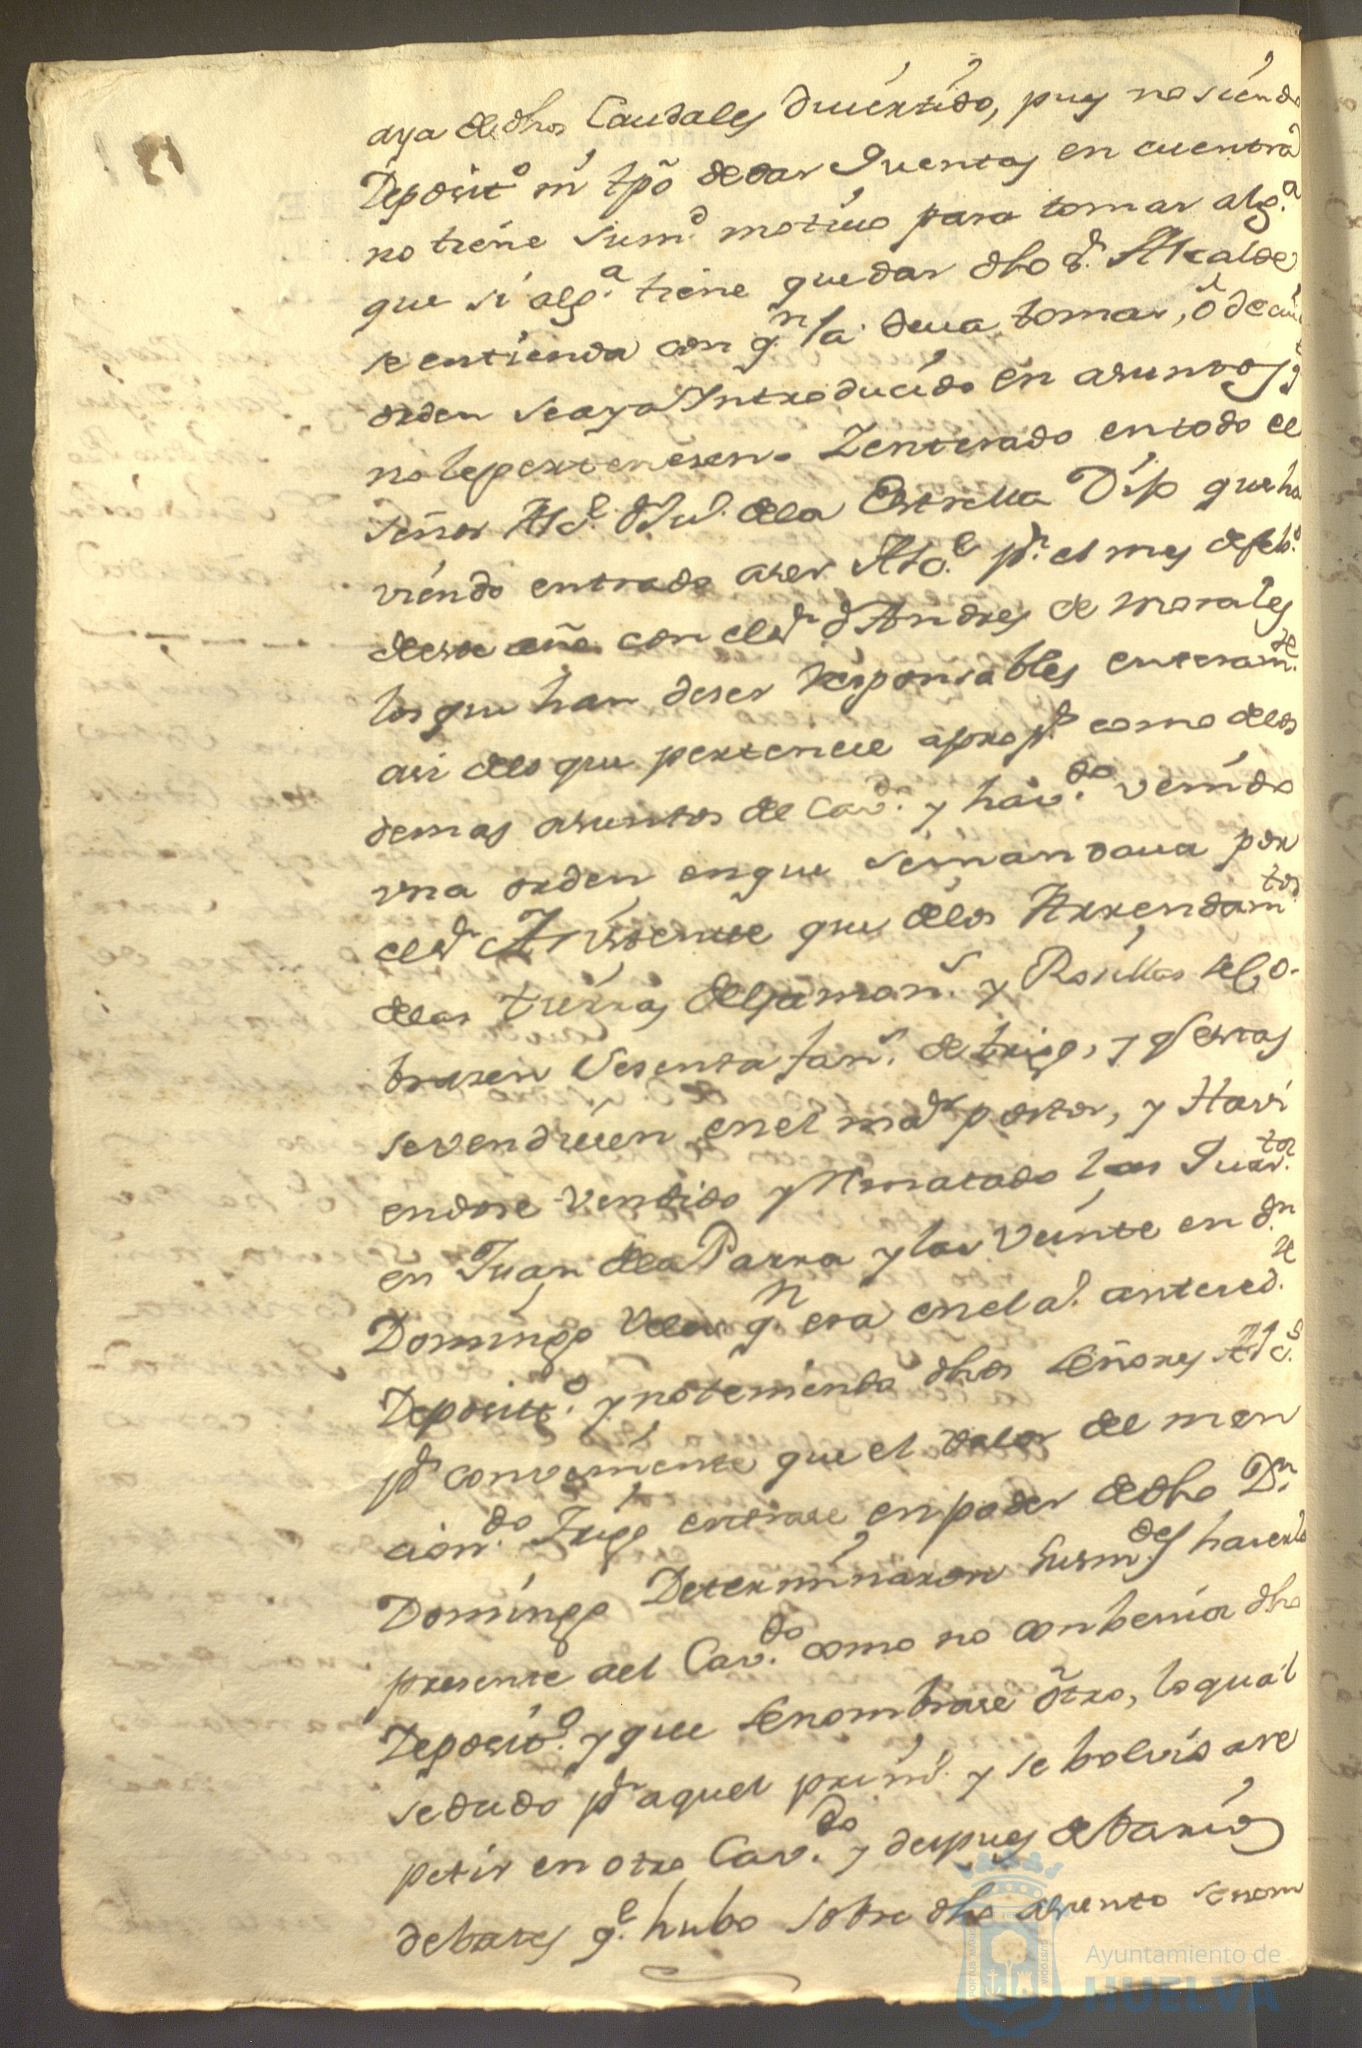 aya de dhos Caudales divertido, pues no siendo
Deposit.º ni tpõ de dar Quentas en cuentra
no tiene sum.d motivo para tomar alg.a
que si alg.a tiene que dar dho S.r Alcalde
se entienda con q.n la deva tomar, ô de cui
orden se aya Yntroducido en asuntos q
no le pertenesen. Zenterado en todo el
señor Alc.e D. Ju.º de la Estrella Dip que ha
viendo entrado aser Alc.e p.r el mes de feb.º
de este año con el s.r d.n Andres de Morales
los que han deser Responsables enteram.te
asi delo que pertenece a prop.s como delos
demas asuntos de Cav.do y hav.do venido
vna orden en que se mandava por
el s.r Asistente que delos Arrendam.tos
delas tierras del Gamon.l y Rosillas se Co-
brasen Sesenta fan.s de trigo, y q estas
se vendiesen en el ma.r postor, y Havi
endose vendido y Rematado las Quar.ta
en Juan dela Parra y las Veinte en d.n
Domingo q.n era en el a.º anteced.te
Deposit.º y no teniendo dhos Señores Alc.s
p.r conveniente que el valor del men
cion.do Trigo entrase en poder de dho D.n
Domingo Determinaron sus m.des hacerlo
presente al Cav.do como no conbenia dho
Deposit.º y que se nombrase otro, lo qual
se dudo p.r aquel prim.º y se bolvio a re
petir en otro Cav.do y despues de barios
debates q.e hubo sobre dho asunto se nom
Ayuntamiento de
HUELVA